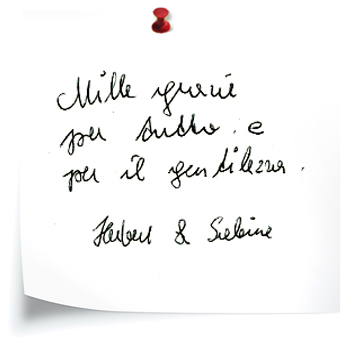 Mille grazie
per tutto e
per il gentilezza.
Herbert & Sabine